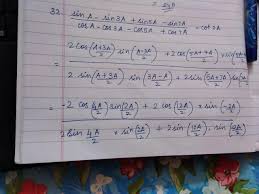 32. sin A - sin 3A + sin 5A - sin 7A
cos A - cos 3A - cos 5A + cos 7A = cot 2A
= 2 cos (A+3A / 2) sin (A-3A / 2) + 2 cos (5A+7A / 2) × sin
2 sin (A+3A / 2) sin (3A-A / 2) + 2 sin (5A+7A / 2) sin
= -2 cos (4A / 2) sin (2A / 2) + 2 cos (12A / 2) × sin (-2A / 2)
2 sin 4A / 2 × sin (2A / 2) + 2 sin - (12A / 2) × sin (2A / 2)